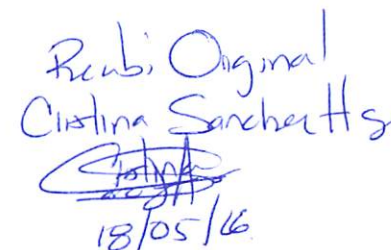 Recibi Original
Cristina Sanchez Hs
18/05/16